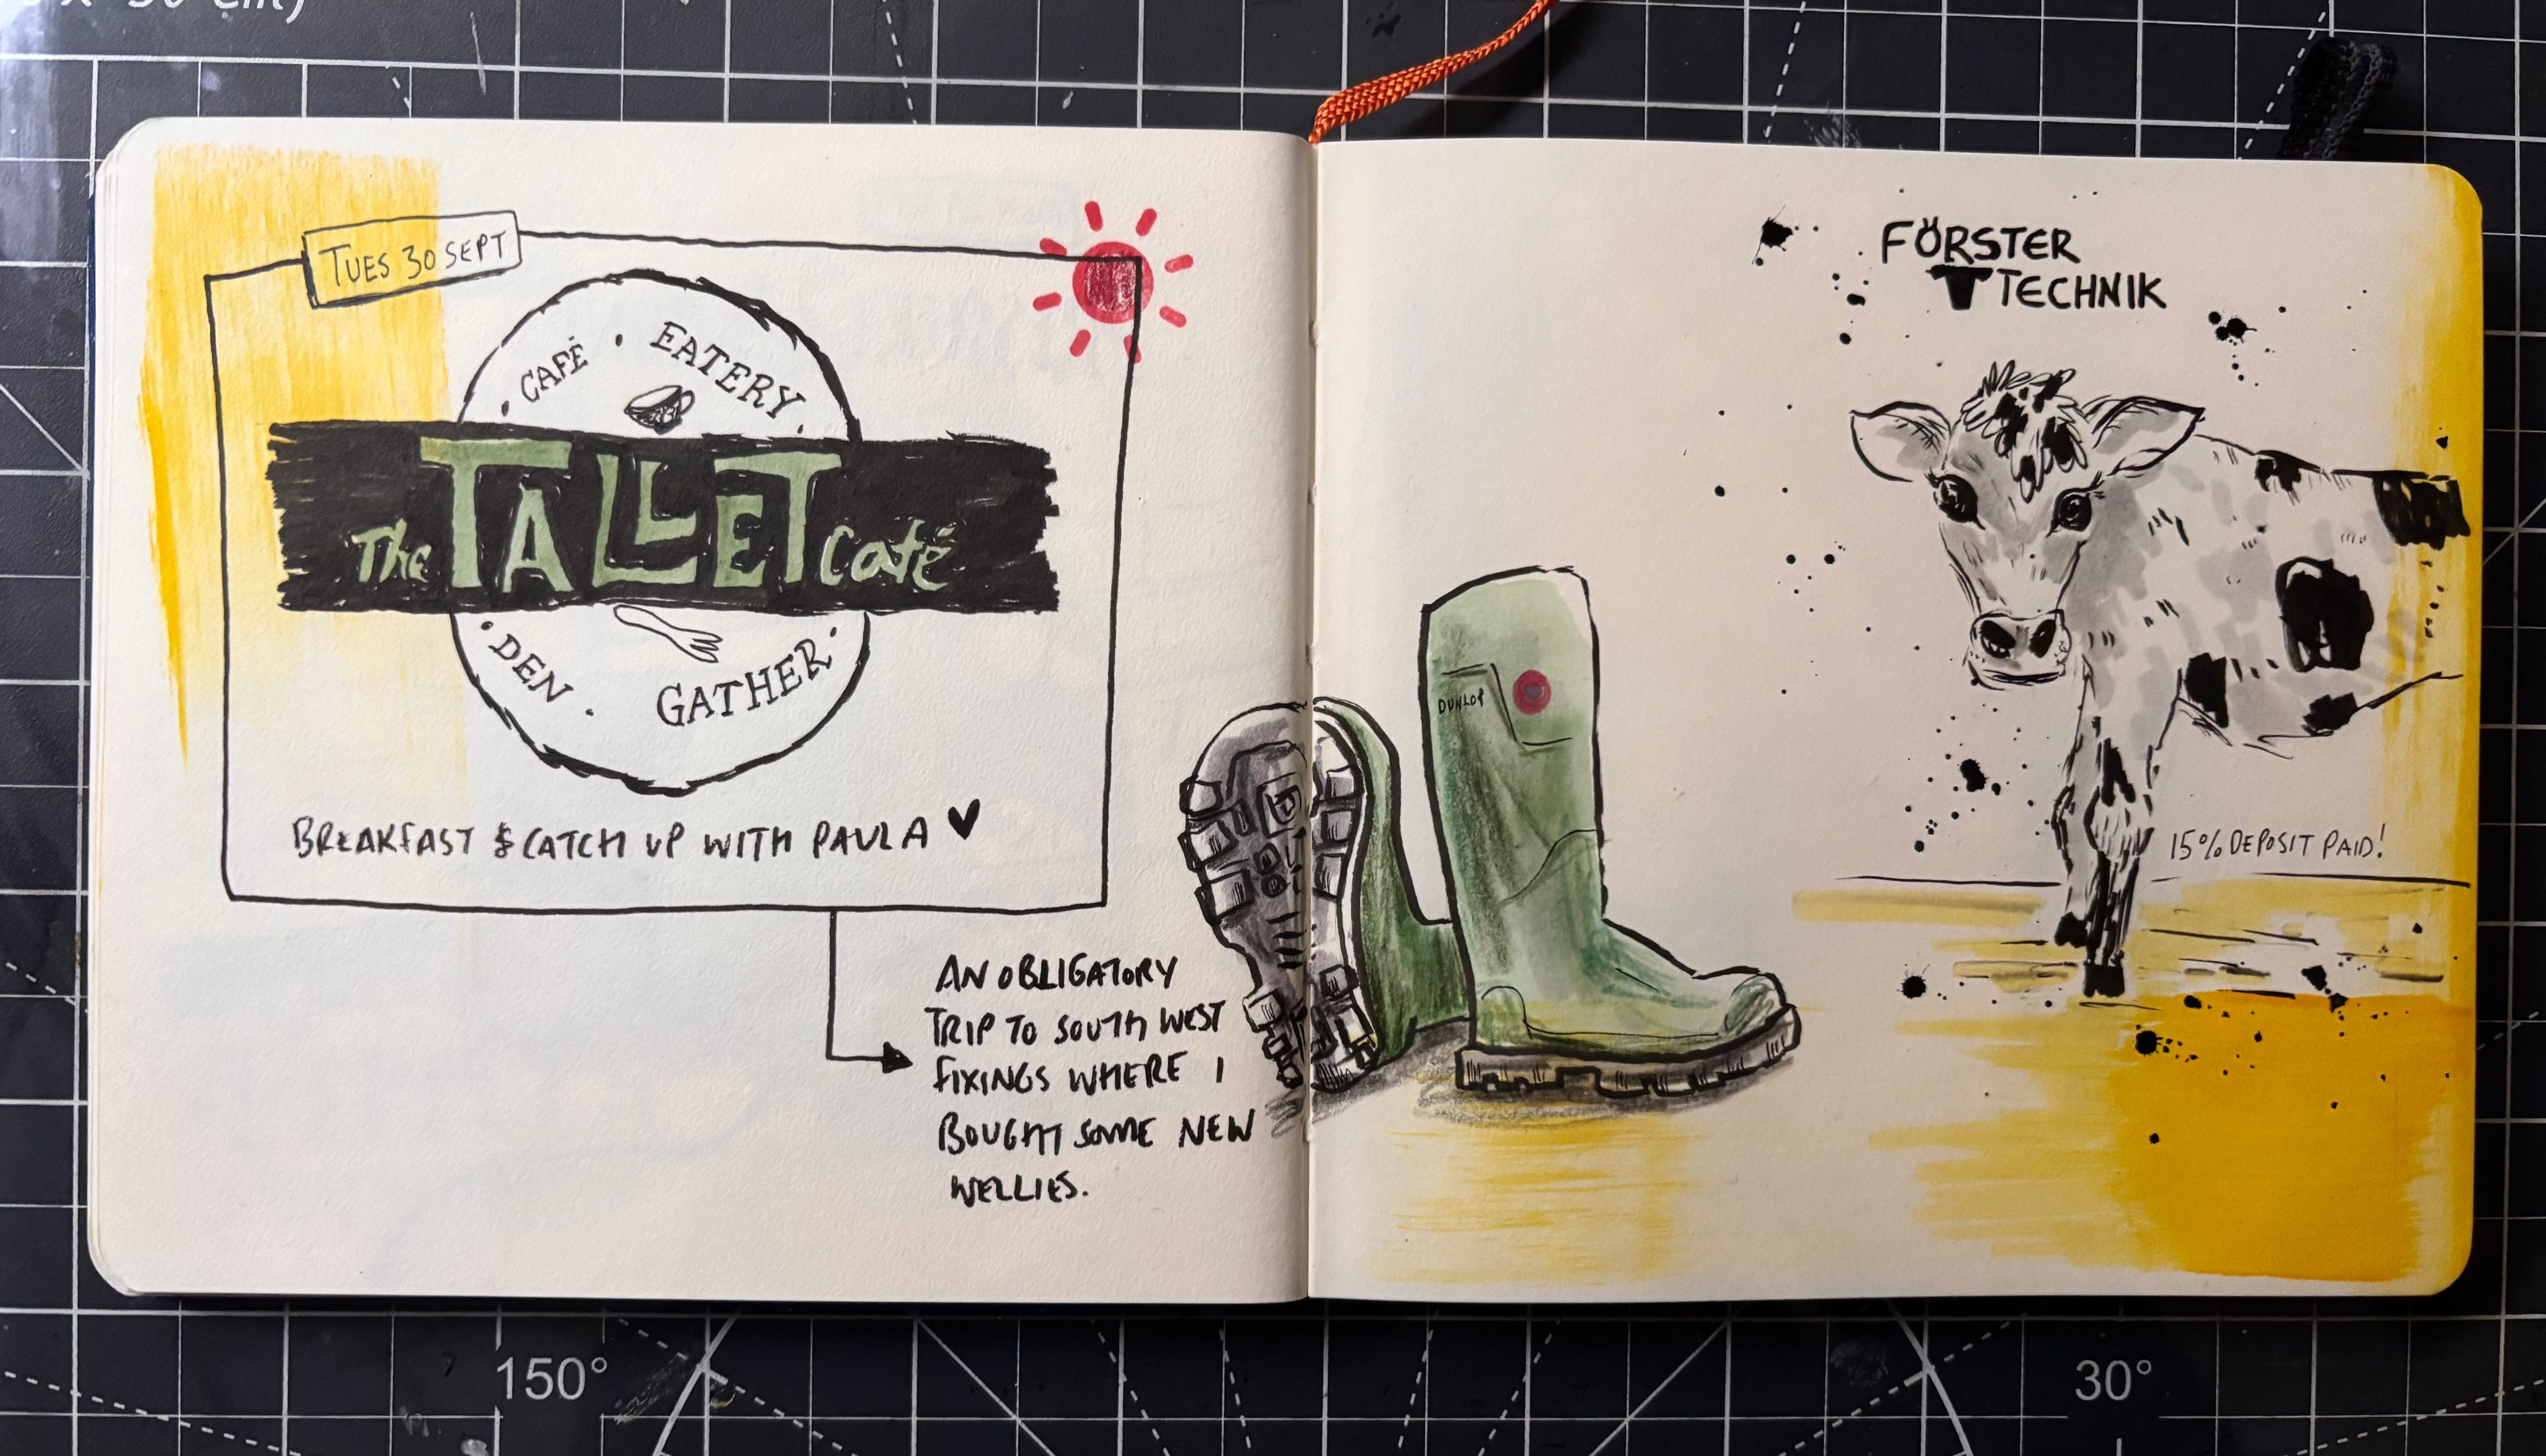 TUES 30 SEPT
CAFÉ · EATERY
The TALLET Café
DEN · GATHER
BREAKFAST & CATCH UP WITH PAULA
AN OBLIGATORY
TRIP TO SOUTH WEST
FIXINGS WHERE I
BOUGHT SOME NEW
WELLIES.
DUNLOP
FÖRSTER
TECHNIK
15% DEPOSIT PAID!
150°
30°